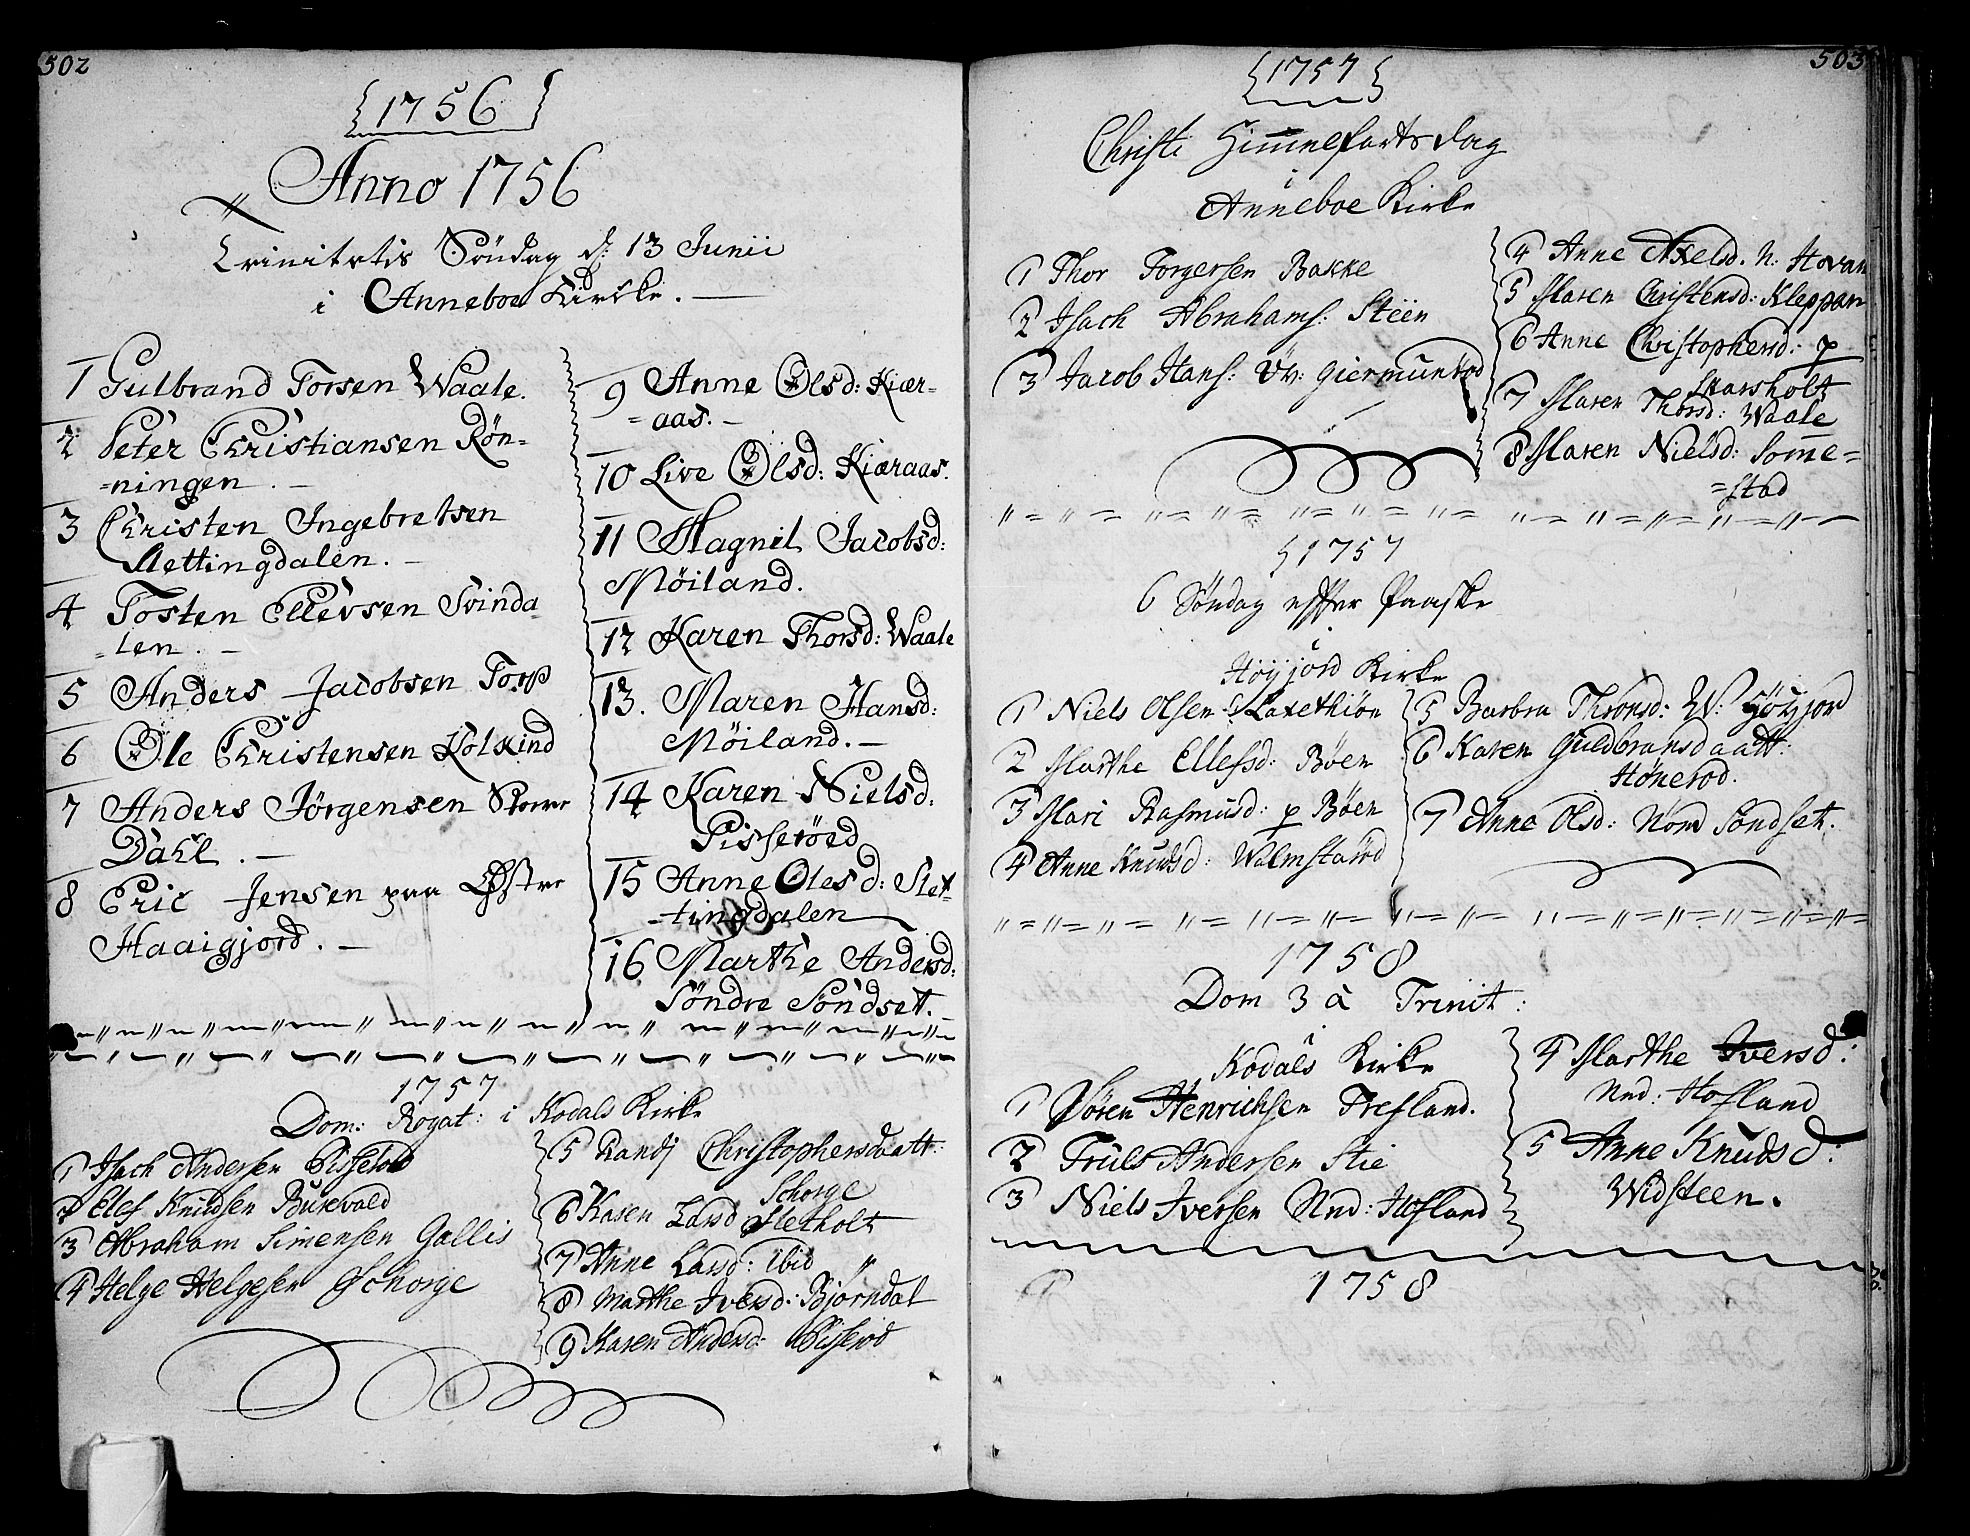 502
1756
Anno 1756
Trinitatis Söndag d: 13 Junii
i Anneboe Kircke.
1 Gulbrand Torsen Waale.
2 Peter Christiansen Rön=
=ningen.
3 Christen Ingebretsen
Slettingdalen.
4 Tosten Ellevsen Svinda
=len.
5 Anders Jacobsen Torp
6 Ole Christensen Kolkind
7 Anders Jörgensen Store
Dahl.
8 Eric Jensen paa Østre
Haaigjord.
9 Anne Olsd: Kiær=
=aas.
10 Live Olsd: Kiæraas.
11 Magnil Jacobsd:
Möiland.
12 Karen Thorsd: Waale
13. Maren Hansd:
Möiland.
14 Karen Nielsd:
Pisseröed
15 Anne Olesd: Slet=
=tingdalen
16 Marthe Andersd:
Söndre Söndset.
1757
Dom: Rogat: i Kodals Kirke
1 Isach Andersen Pisserod
2 Elef Knudsen Bukvald
3 Abraham Simensen Gallis
4 Helge Helgesen Schorge
5 Randj Christophersdatt:
Schorge
6 Karen Larsd: Sletholt
7 Anne Larsd: Ibid
8 Marthe Iversd: Bjørndal
9 Karen Andersd: Pisserod
503
1757
Christi Himmelfarts dag
i
Anneboe Kirke
1 Thor Torgersen Bakke
2 Isach Abrahams: Steen
3 Jacob Hans: Öv: Giermundrod
4 Anne Axelsd. N: Hovan
5 Maren Christensd: Kleppan
6 Anne Christophersd: p
Skarsholt
7 Maren Thorsd: Waale
8 Maren Nielsd: Somme=
=stad
1757
6 Søndag efter Paaske
i
Høyjord Kirke
1 Niels Olsen Laxethiøn
2 Marthe Ellefsd: Bøen
3 Mari Rasmusd: p Bøen
4 Anne Knudsd: Walmstarød
5 Barbra Thronsd: W: Høyjord
6 Karen Guldbransdaatt:
Hønerod.
7 Anne Olsd: Nord Sondset.
1758
Dom 3 a Trinit:
i
Kodals Kirke
1 Sören Henrichsen Trefland.
2 Truls Andersen Stie
3 Niels Iversen Nnd: Hofland
4 Marthe Iversd:
Nnd: Hofland
5 Anne Knudsd:
Widsteen.
1
1758